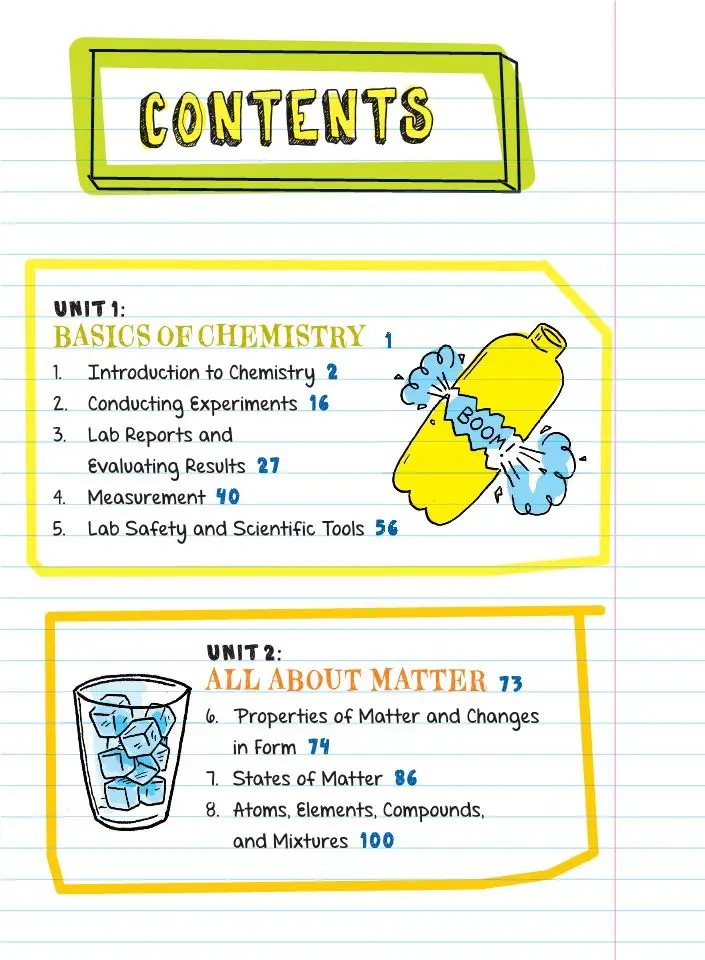 CONTENTS
UNIT 1:
BASICS OF CHEMISTRY 1
1. Introduction to Chemistry 2
2. Conducting Experiments 16
3. Lab Reports and
Evaluating Results 27
4. Measurement 40
5. Lab Safety and Scientific Tools 56
BOOM
UNIT 2:
ALL ABOUT MATTER 73
6. Properties of Matter and Changes
in Form 74
7. States of Matter 86
8. Atoms, Elements, Compounds,
and Mixtures 100